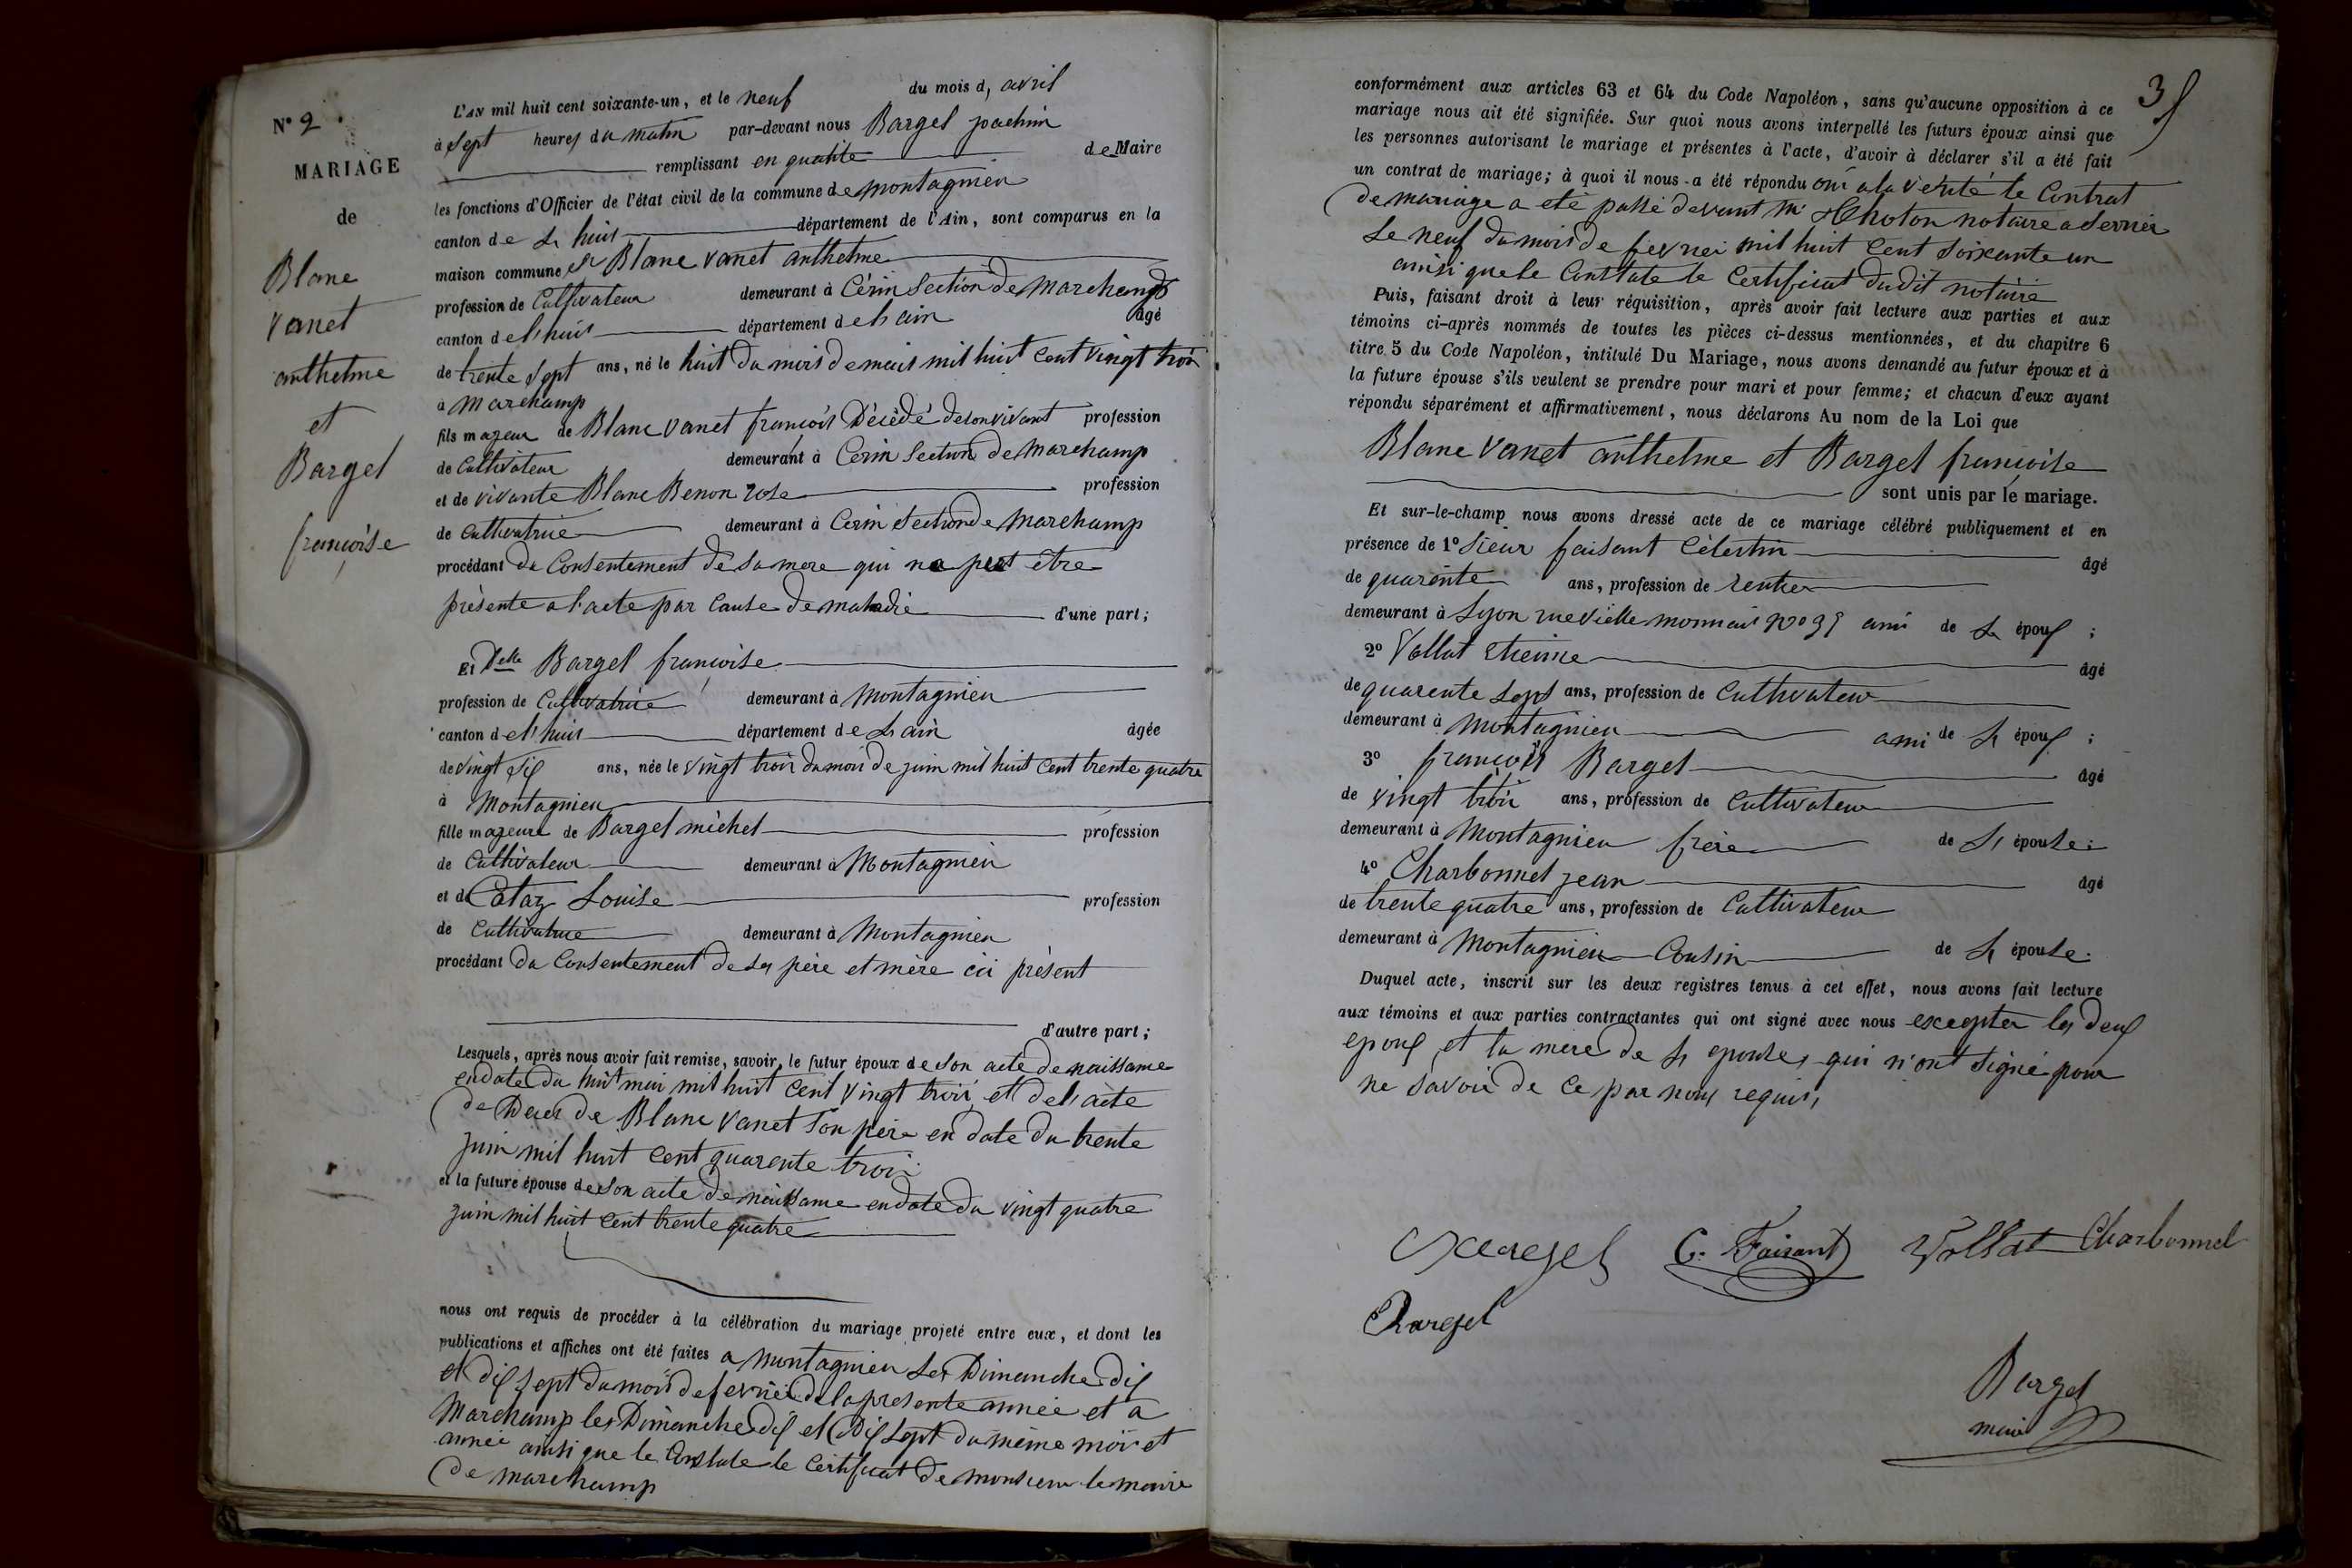 N° 2.
MARIAGE
de
Blanc
vanet
anthelme
et
Bargel
françoise
L'AN mil huit cent soixante-un, et le neuf du mois d, avril
à sept heures du matin par-devant nous Bargel joachim
remplissant en qualité de Maire
les fonctions d'Officier de l'état civil de la commune de montagnieu
canton de L huis département de l'Ain, sont comparus en la
maison commune Sr Blanc vanet anthelme
profession de Cultivateur demeurant à Cérin Section de Marchamp
canton de L'huis département de L'ain âgé
de trente sept ans, né le huit du mois de mai mil huit cent vingt trois
à Marchamp
fils majeur de Blanc vanet françois Décédé de son vivant profession
de Cultivateur demeurant à Cerin Section de Marchamp
et de vivante Blanc Benon rose profession
de Cultivatrice demeurant à Cerin Section de Marchamp
procédant du Consentement de sa mere qui ne peut être
présente a l'acte par Cause de maladie d'une part;
Et Delle Bargel françoise
profession de Cultivatrice demeurant à Montagnieu
canton de L'huis département de L'ain âgée
de vingt six ans, née le vingt trois du mois de juin mil huit cent trente quatre
à Montagnieu
fille majeure de Bargel michel profession
de Cultivateur demeurant à Montagnieu
et de Cataz Louise profession
de Cultivatrice demeurant à Montagnieu
procédant du Consentement de ses père et mère ici présent
d'autre part;
Lesquels, après nous avoir fait remise, savoir, le futur époux de son acte de naissance
en date du huit mai mil huit cent vingt trois et de l'acte
de Deces de Blanc vanet son père en date du trente
juin mil huit cent quarente trois
et la future épouse de son acte de naissance en date du vingt quatre
juin mil huit cent trente quatre
nous ont requis de procéder à la célébration du mariage projeté entre eux, et dont les
publications et affiches ont été faites a Montagnieu Les Dimanche dix
et dix sept du mois de fevrier de la presente année et a
Marchamp les Dimanche dix et dix sept du même mois et
année ainsi que le Constate le Certificat de monsieur le maire
de marchamp
35
conformément aux articles 63 et 64 du Code Napoléon, sans qu'aucune opposition à ce
mariage nous ait été signifiée. Sur quoi nous avons interpellé les futurs époux ainsi que
les personnes autorisant le mariage et présentes à l'acte, d'avoir à déclarer s'il a été fait
un contrat de mariage; à quoi il nous a été répondu oui a la vérité le Contrat
de mariage a été passé devant Mr notaire a Serrier
Le neuf du mois de fevrier mil huit cent soixante un
ainsi que le Constate le Certificat du dit notaire
Puis, faisant droit à leur réquisition, après avoir fait lecture aux parties et aux
témoins ci-après nommés de toutes les pièces ci-dessus mentionnées, et du chapitre 6
titre 5 du Code Napoléon, intitulé Du Mariage, nous avons demandé au futur époux et à
la future épouse s'ils veulent se prendre pour mari et pour femme; et chacun d'eux ayant
répondu séparément et affirmativement, nous déclarons Au nom de la Loi que
Blanc Vanet anthelme et Bargel françoise
sont unis par le mariage.
Et sur-le-champ nous avons dressé acte de ce mariage célébré publiquement et en
présence de 1° Sieur faisant Célestin âgé
de quarente ans, profession de rentier
demeurant à Lyon rue vieille monnais no 35 ami de L époux ;
2° Vallat Etienne âgé
de quarente sept ans, profession de Cultivateur
demeurant à Montagnieu ami de L époux ;
3° françois Bargel âgé
de vingt trois ans, profession de Cultivateur
demeurant à Montagnieu frère de L' épouse;
4° Charbonnel jean âgé
de trente quatre ans, profession de Cultivateur
demeurant à Montagnieu Cousin de L épouse.
Duquel acte, inscrit sur les deux registres tenus à cet effet, nous avons fait lecture
aux témoins et aux parties contractantes qui ont signé avec nous excepter les deux
epoux et la mere de L epouse, qui n'ont signé pour
ne savoir de ce par nous requis,
Bargel C. Faisant Vallat Charbonnel
Bargel
Bargel
maire